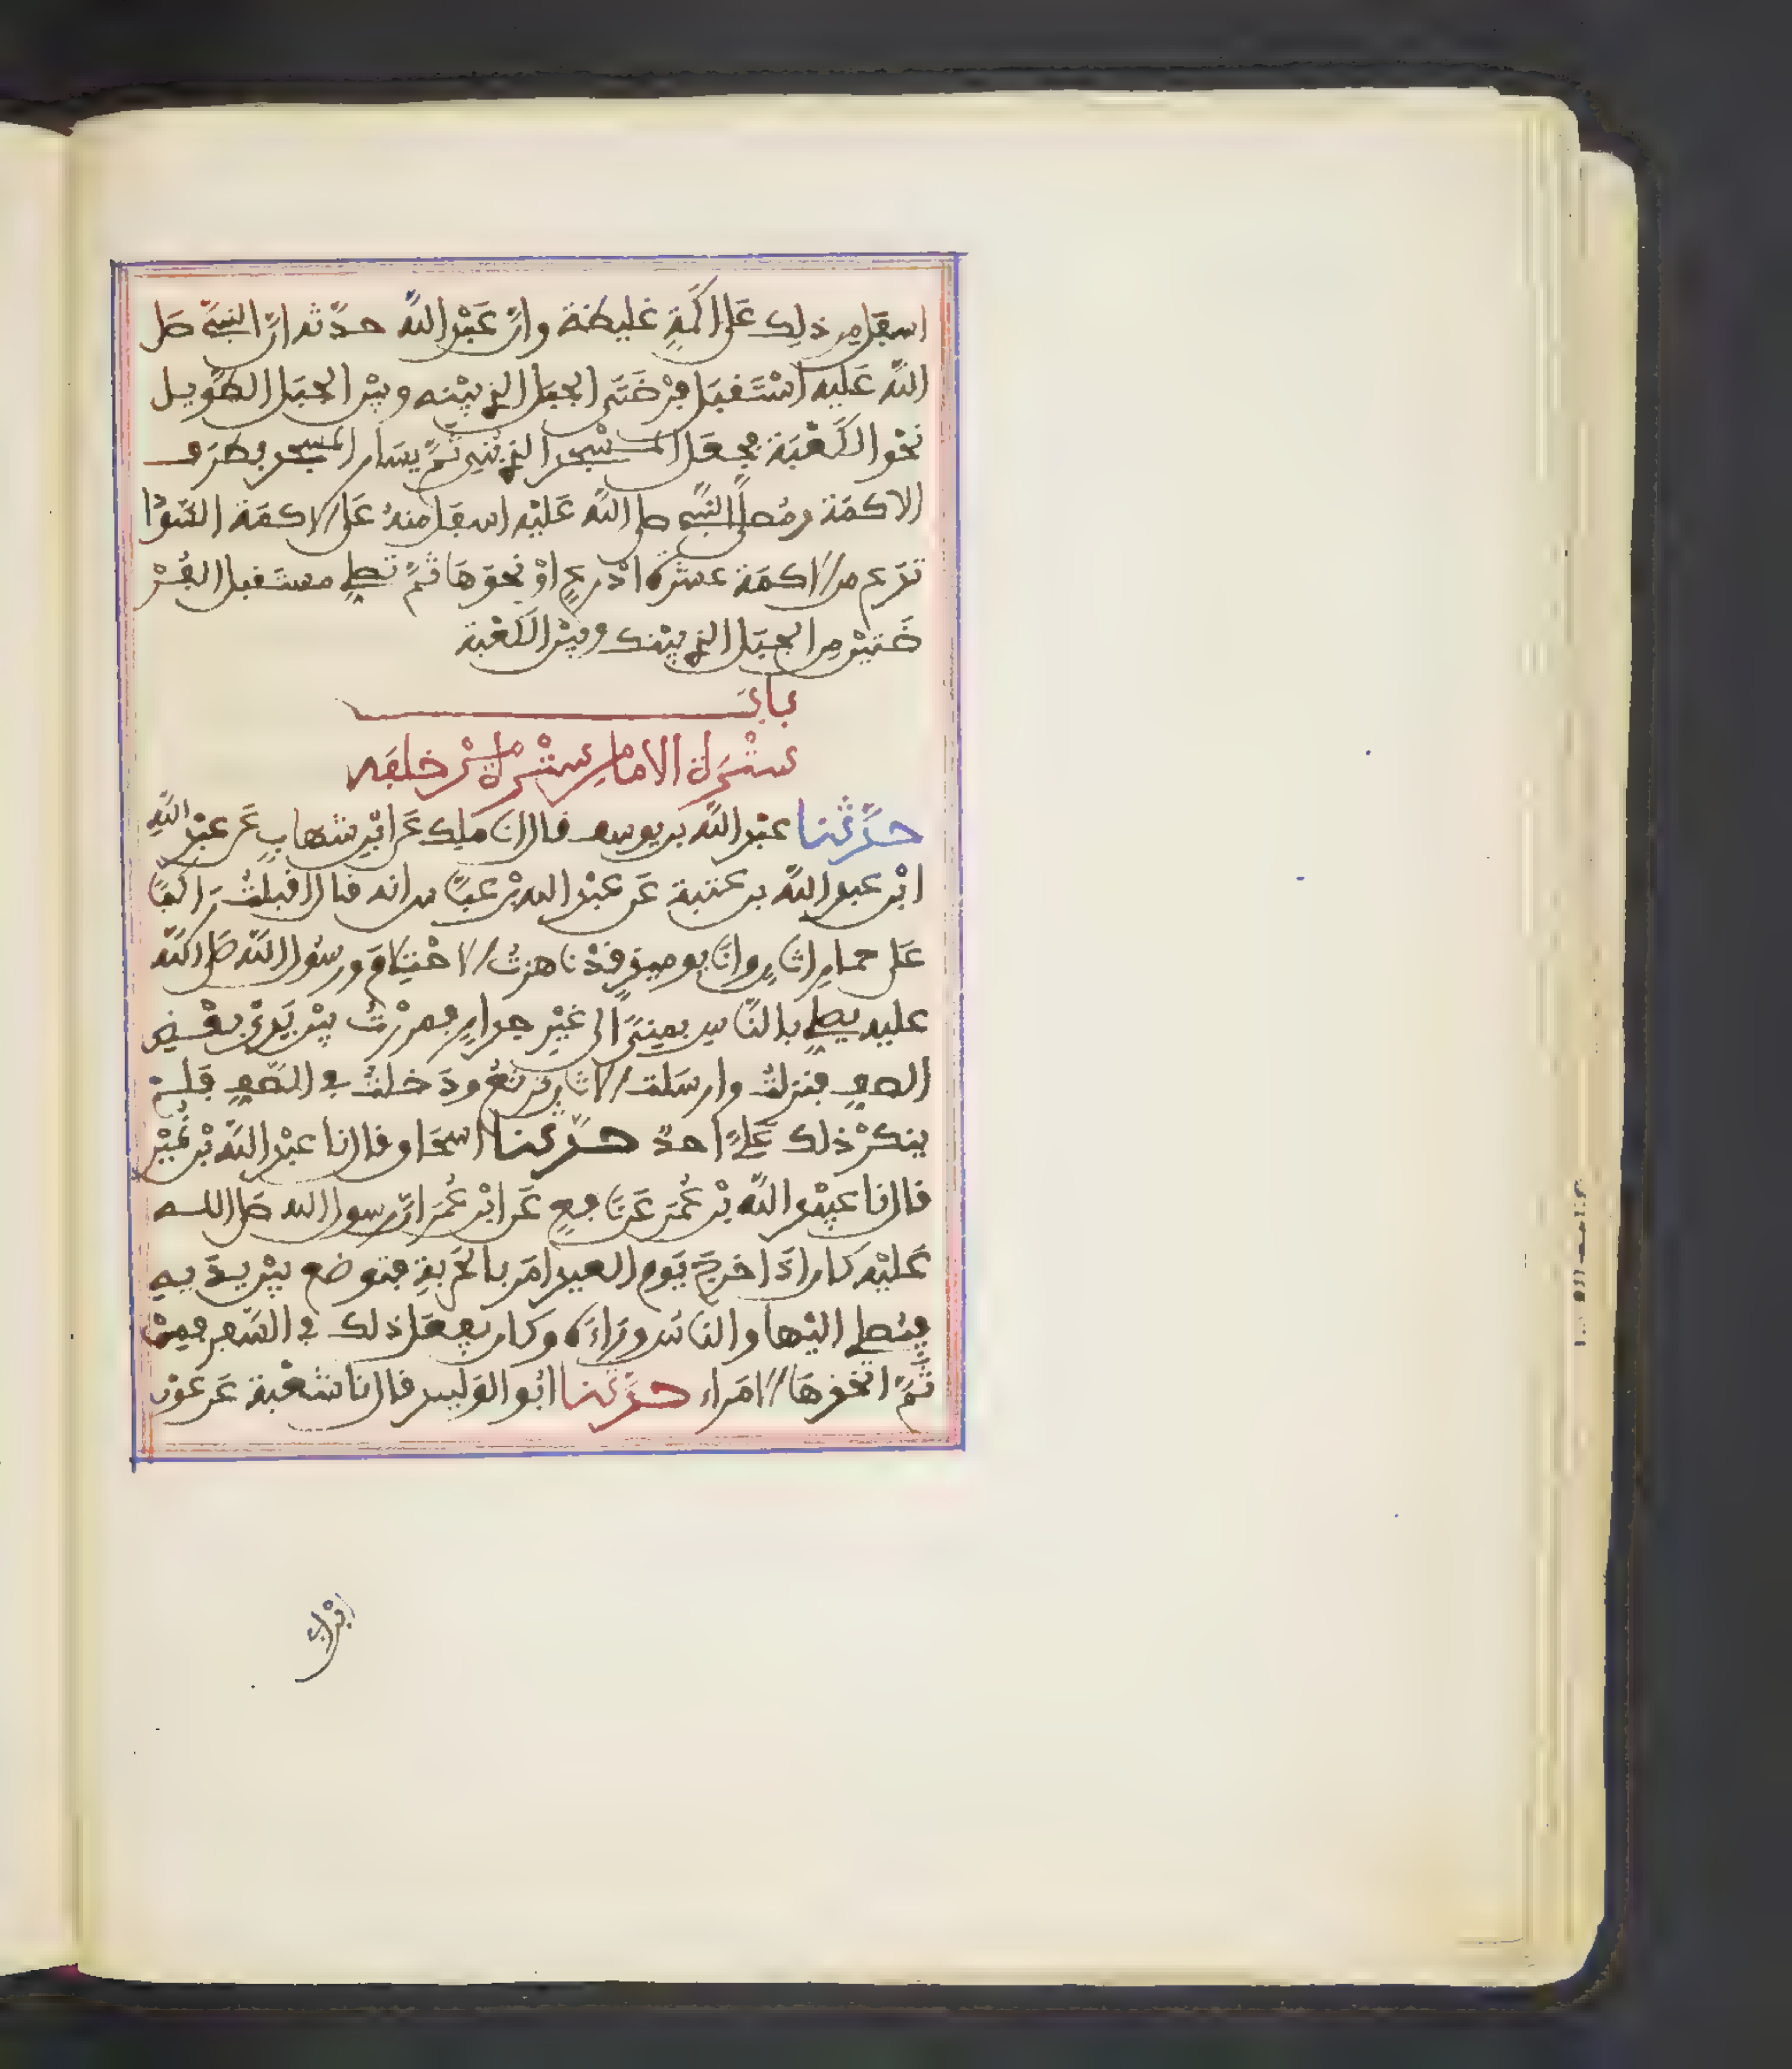 اسفل من ذلك على اكَمَةٍ غليظة وانّ عَبْد اللّه حدّثه انّ النبيّ صلى
اللّه عَليه اسْتَقبَل فُرْضَتَي الجبَل الذي بيْنه وبيْن الجبَل الطّويل
نحْو الكَعْبَة فجعَل المسْجد الذي بُنِي ثَمَّ يسَار المسجد بطرَف
الاكمَة ومُصلّى النّبي صلى اللّه عَليْه اسفَل منهُ عَلى الاكمَة السّوْدا
تدَع من الاكمَة عشرة اذْرعٍ اوْ نحوَهَا ثمَّ تصلي مستَقبل الفُرْ
ضَتيْن مِن الجبَل الذي بيْنك وبيْن الكَعْبة
بابُ
ستْرَة الامام سترة مَنْ خلفه
حدَّثنا عبْد اللّه بن يوسف قال انا ملك عَن ابْن شهابٍ عَن عبيْد اللّهِ
ابْن عبد اللّه بن عتبة عَن عبْد الله بْن عبّاس انه قال اقبلتُ رَاكبًا
عَلى حمارٍ اتانٍ وانا يوميذٍ قدْ ناهزتُ الاحْتلامَ ورسُول اللّه صَلى اللّه
عليه يصلي بالنّاس بمِنىً الى غيْر جدارٍ فمررْتُ بيْن يَديْ بعْض
الصف فنزلتُ وارسَلت الاتان ترتعُ ودَخلتُ في الصّفِ فَلمْ
ينكرْ ذلك عَليَّ احدٌ حدّثنا اسحاق قال نا عبْد اللّه بْن نُمَيْر
قال نا عبيْد اللّه بْن عُمَر عَن نافعٍ عَن ابْن عُمَر انّ رسول الله صَلى الله
عَليْه كان اذَا خرجَ يَوم العيد امَر بالحَرْبةِ فتوضع بيْن يدَيهِ
فيُصلي اليْها والناسُ ورَاءَه وكان يفعَل ذلك في السّفر فمِنْ
ثَمَّ اتخذهَا الامَراء حدّثنا ابُو الوَليد قال نا شعْبة عَن عوْن
ابْن ابي